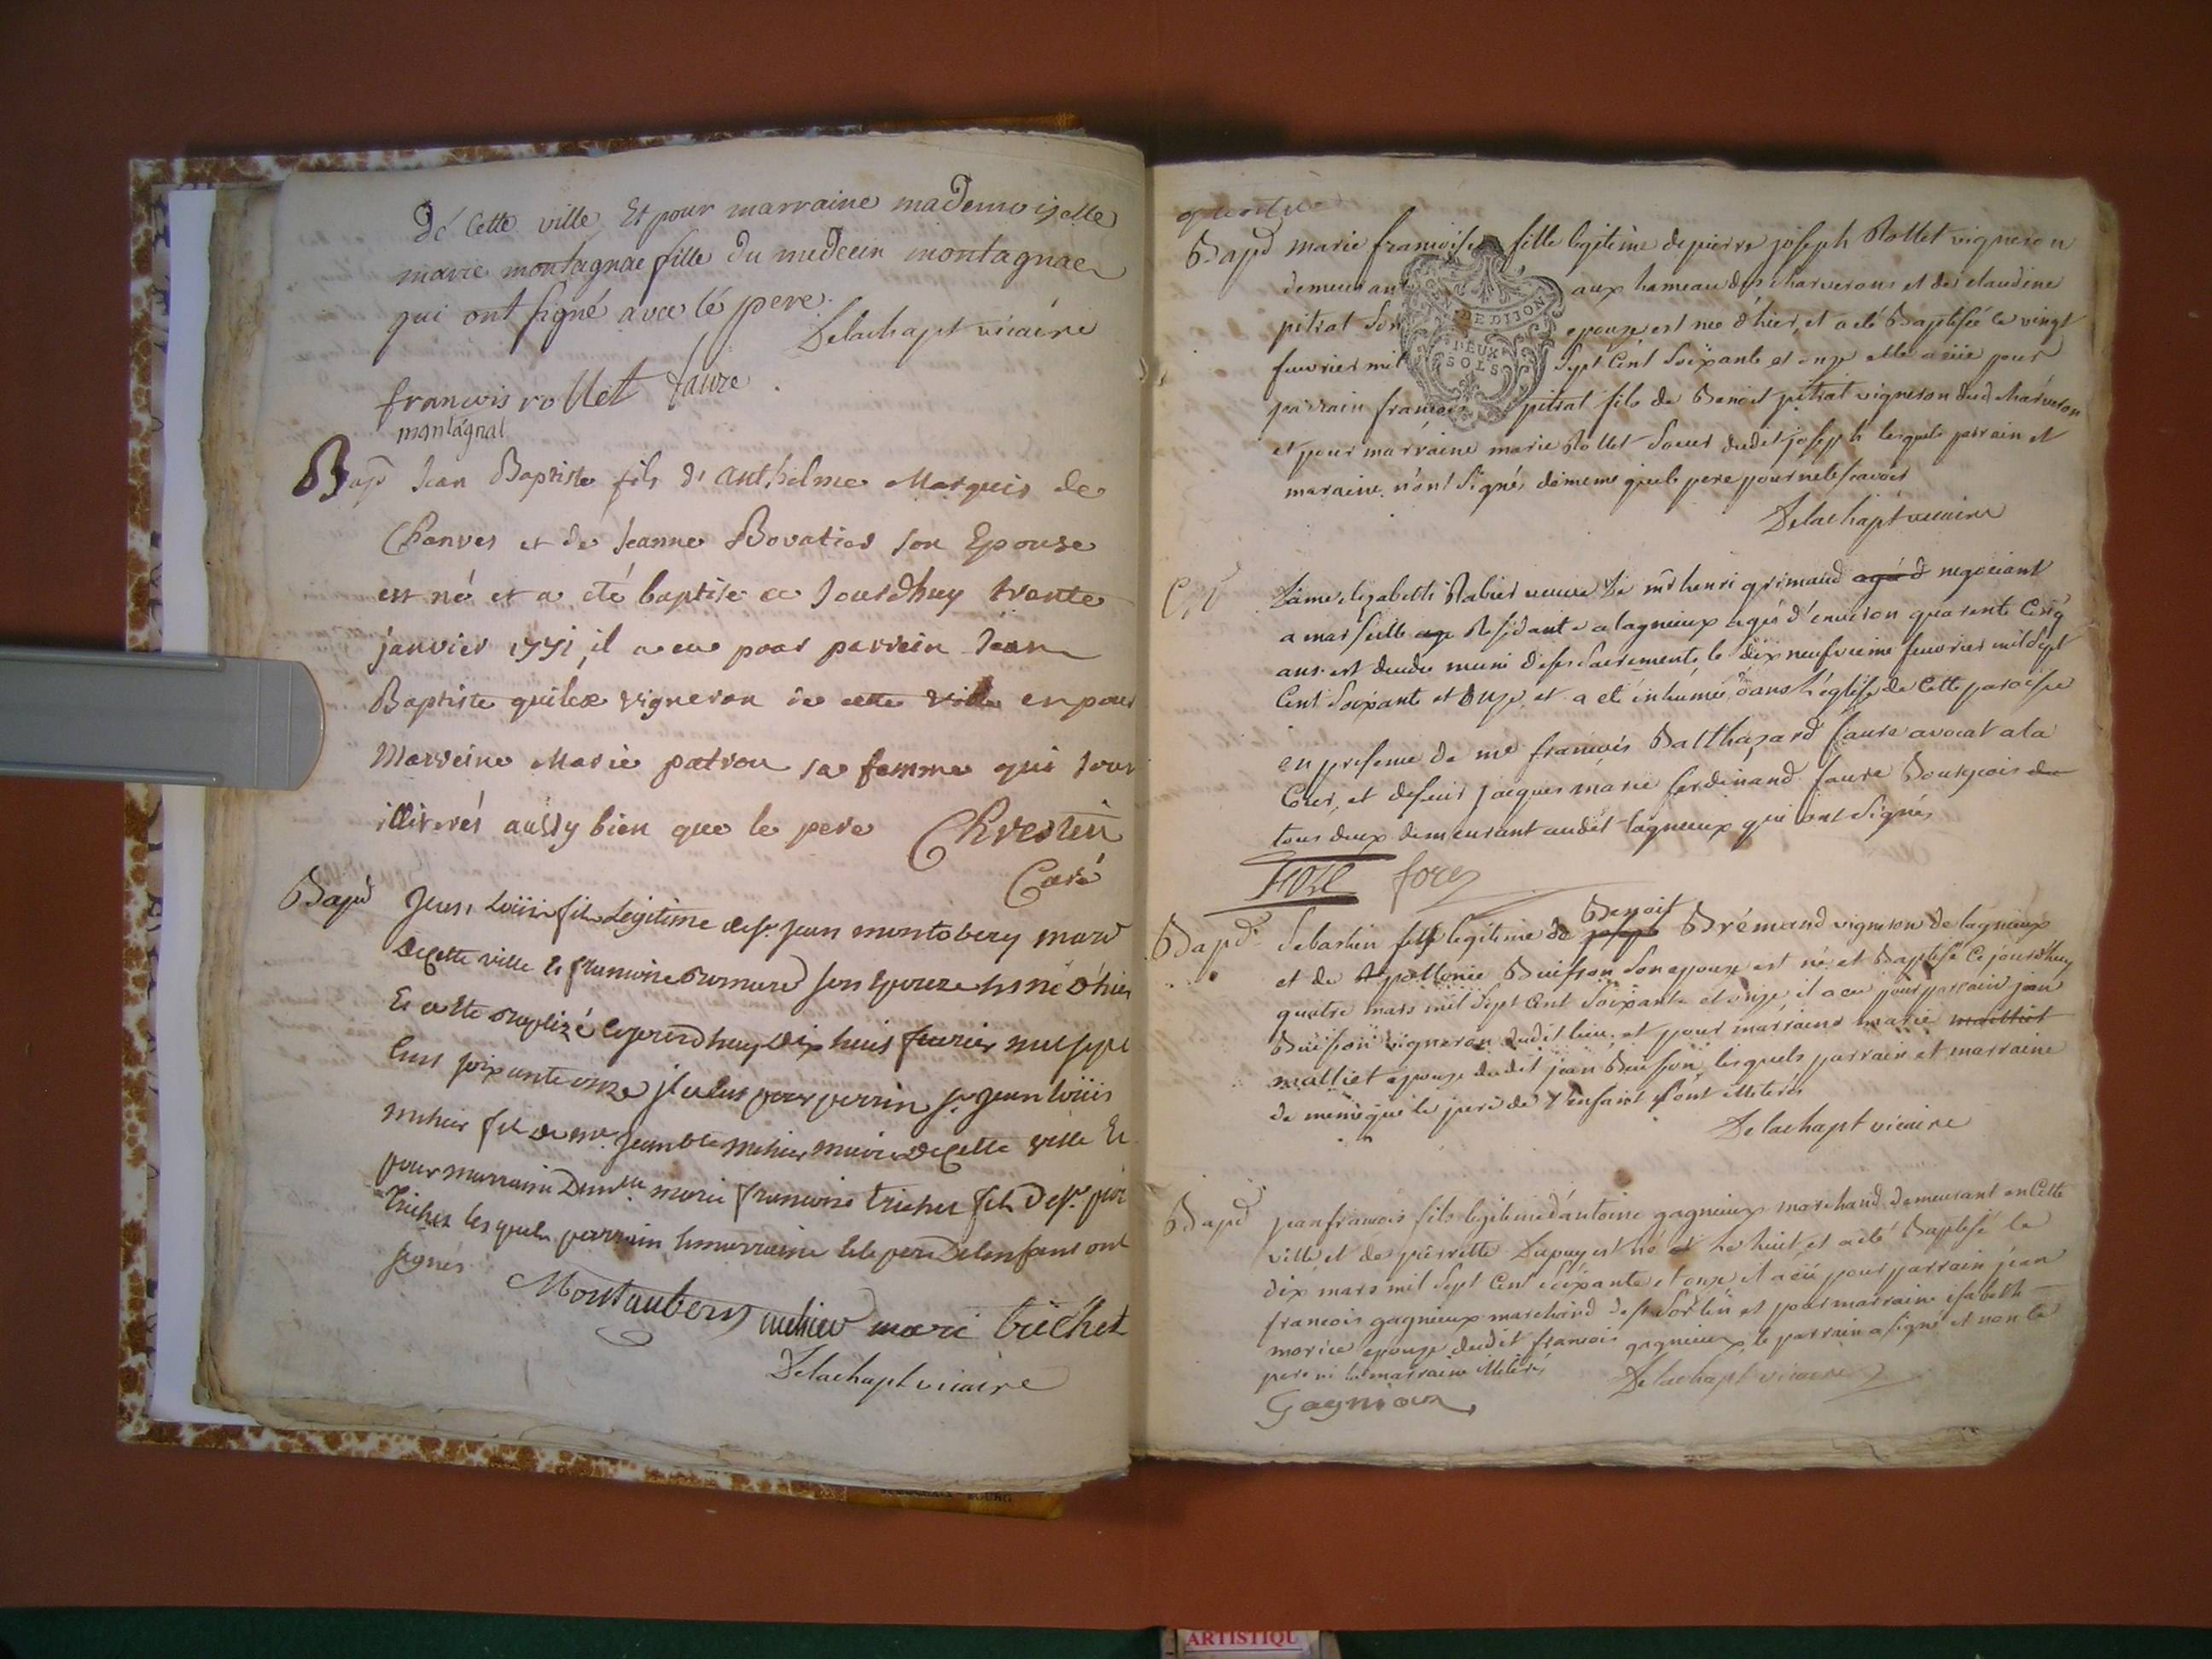 de Cette ville Et pour marraine mademoiselle
marie montagnac fille du medecin montagnac
qui ont signé avec le pere.
Delachapt vicaire
francois rollet faure
montagnal
Bap Jean Baptiste fils d'anthelme Marquis de
Chanves et de Jeanne Bovatier son Epouse
est né et a été baptisé ce Jourdhuy trente
janvier 1771, il a eu pour parrein Jean
Baptiste vigneron de cette ville et pour
Marreine Marie patron sa femme qui sont
illiterés aussy bien que le pere Chrestin
Curé
Bapd Jean Loüis fils Legitime de sr Jean montobery mard
De Cette ville et francoise son Epouze est né d'hier
Et a ete Baptizé cejourdhuy dix huit fevrier mil sept
Cent soixante onze il a eus pour parrin sr Jean loüis
fils de mr Jean bte maire de cette ville Et
pour marraine Demlle marie francoise trichet file de sr
trichet les quels parrain et marraine et le pere de lenfant ont
signés
Montaubery marie trichet
Delachapt vicaire
quatre
Bapd marie francoise fille legitime de pierre joseph Rollet vigneron
demeurant aux hameau des charverons et de claudine
pitrat son epouze est née d'hier, et a eté Baptisée le vingt
fevrier mil Sept Cent Soixante et onze elle a eüe pour
parrain francois pitrat fils de Benoit pitrat vigneron dud charveron
et pour marraine marie Rollet Soeur dudit joseph lesquels parrain et
maraine n'ont Signés demême que le pere pour ne le scavoir
Delachapt vicaire
GEN DE DIJON
DEUX
SOLS
Dame elizabeth Rabier veuve de mr henri grimaud agé d negociant
a marseille age Residante a lagnieux agée d'environ quarente Cinq
ans est decedée muni de ses Sacrements le dix neufvieme fevrier mil Sept
Cent Soixante et onze, et a eté inhumée dans l'eglise de Cette paroisse
en presence de me francois Balthazard faure avocat a la
Cour, et de sieur jacques marie ferdinand faure Bourgeois de
tous deux demeurant audit lagnieux qui ont Signés
Bapd Sebastien fils legitime de joseph Benoit Brémand vigneron de lagnieux
et de Appollonie Buisson Son epouze est né et Baptisé Ce jourd'huy
quatre mars mil Sept Cent Soixante et onze, il a eu pour parrain jean
Buisson vigneron dudit lieu, et pour marraine marie mailliet
malliet epouze dudit jean Buisson, lesquels parrain et marraine
de meme que le pere de l'enfant sont illiterés
Delachapt vicaire
Bapd jean francois fils legitime d'antoine gagnieux marchand demeurant en Cette
ville et de pierrette Dupuy est né et le huit, et a eté Baptisé le
dix mars mil Sept Cent Soixante et onze il a eü pour parrain jean
francois gagnieux marchand de st Sorlin et pour marraine isabeth
morice epouze dudit francois gagnieux, le parrain a signé et non le
pere ni la marraine illiterés Delachapt vicaire
Gagnioux
ARTISTIQU